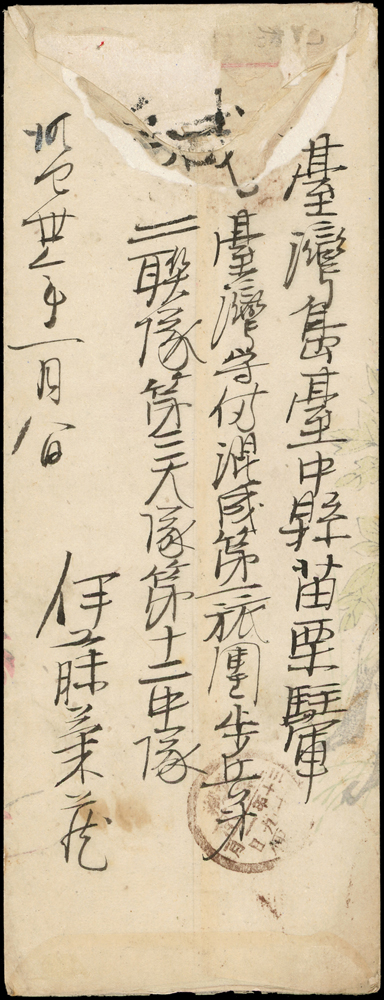 臺灣島臺中縣苗栗駐軍
臺灣守備混成第二旅團步兵第
二聯隊第三大隊第十二中隊
明治卅二年一月八日
伊藤
緘